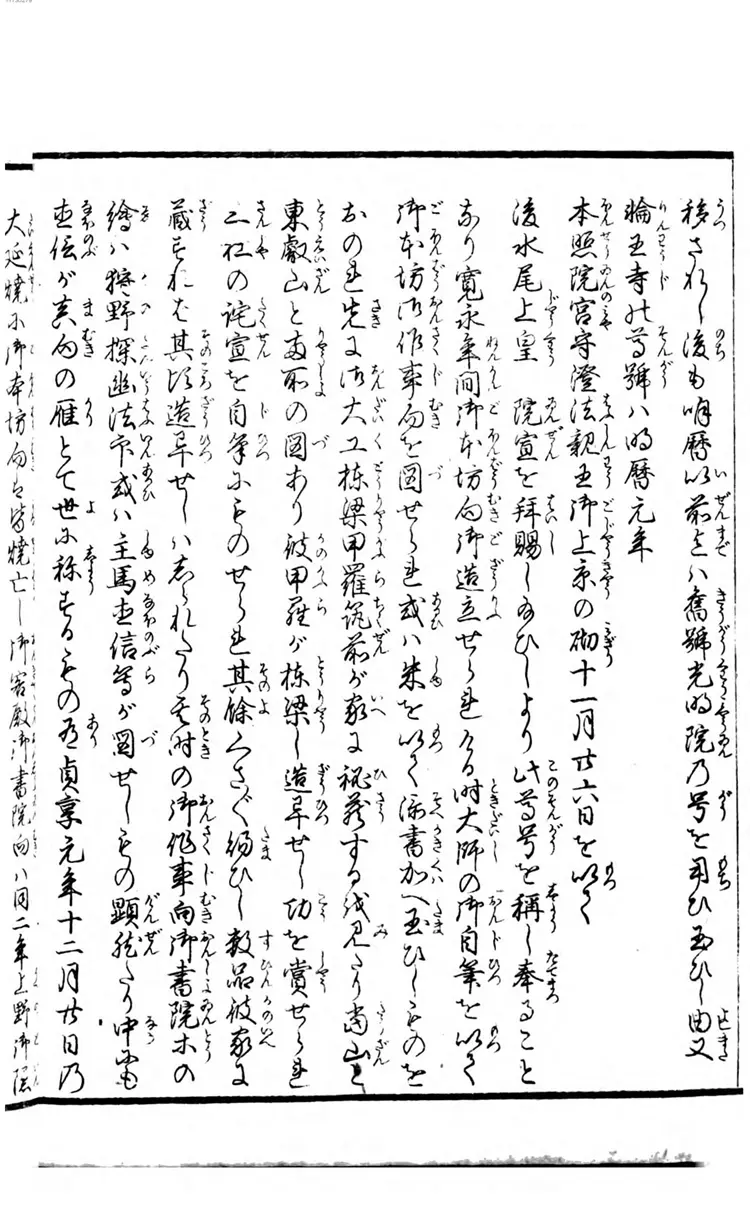 移されし後も明暦以前までハ舊號光明院乃号を用ひ玉ひし由又
輪王寺の尊號ハ明暦元年
本照院宮守澄法親王御上京の砌十一月廿六日を以て
後水尾上皇 院宣を拝賜し玉ひしより此尊号を称し奉ること
なり寛永年間御本坊向御造立せられける時大師の御自筆を以て
御本坊御作事向を図せられ或ハ朱を以て添書加へ玉ひしものを
おのれ先に御大工棟梁甲羅筑前が家に秘蔵する故見たり当山と
東叡山と両所の図あり彼甲羅が棟梁し造畢せし功を賞せられ
三社の詫宣を自筆にものせられ其餘くさぐさ賜ひし数品彼家に
蔵されば其比造畢せしハしられたり其時の御作事向御書院等の
繪ハ狩野探幽法印或ハ主馬直信等が図せしもの顕然たり中にも
直信が真向の雁とて世に称するもの有貞享元年十二月廿日乃
大延焼に御本坊向は皆焼亡し御客殿御書院向ハ同二年上野御隠